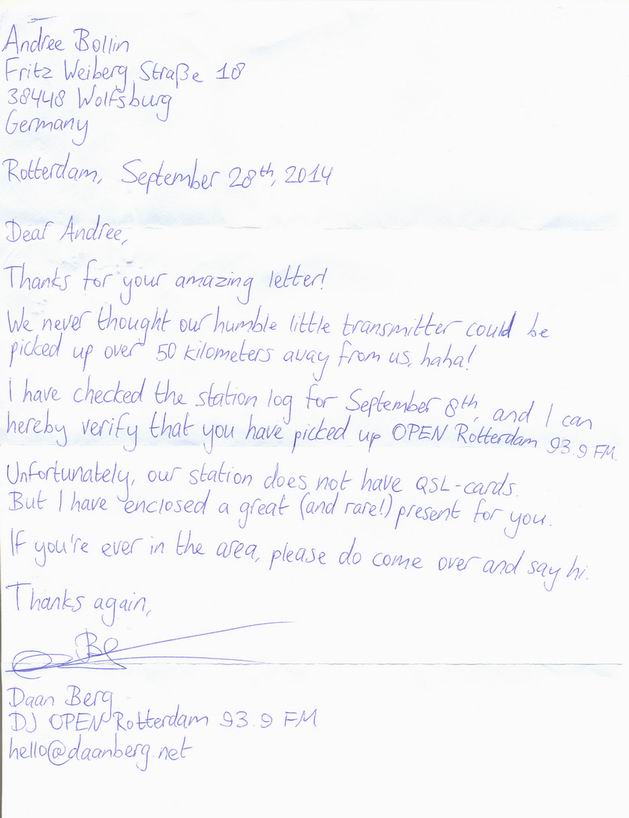 Andree Bollin
Fritz Weiberg Straße 18
38448 Wolfsburg
Germany
Rotterdam, September 28th, 2014
Dear Andree,
Thanks for your amazing letter!
We never thought our humble little transmitter could be
picked up over 50 kilometers away from us, haha!
I have checked the station log for September 8th, and I can
hereby verify that you have picked up OPEN Rotterdam 93.9 FM.
Unfortunately, our station does not have QSL-cards.
But I have enclosed a great (and rare!) present for you.
If you're ever in the area, please do come over and say hi.
Thanks again,
Daan Berg
DJ OPEN Rotterdam 93.9 FM
hello@daanberg.net